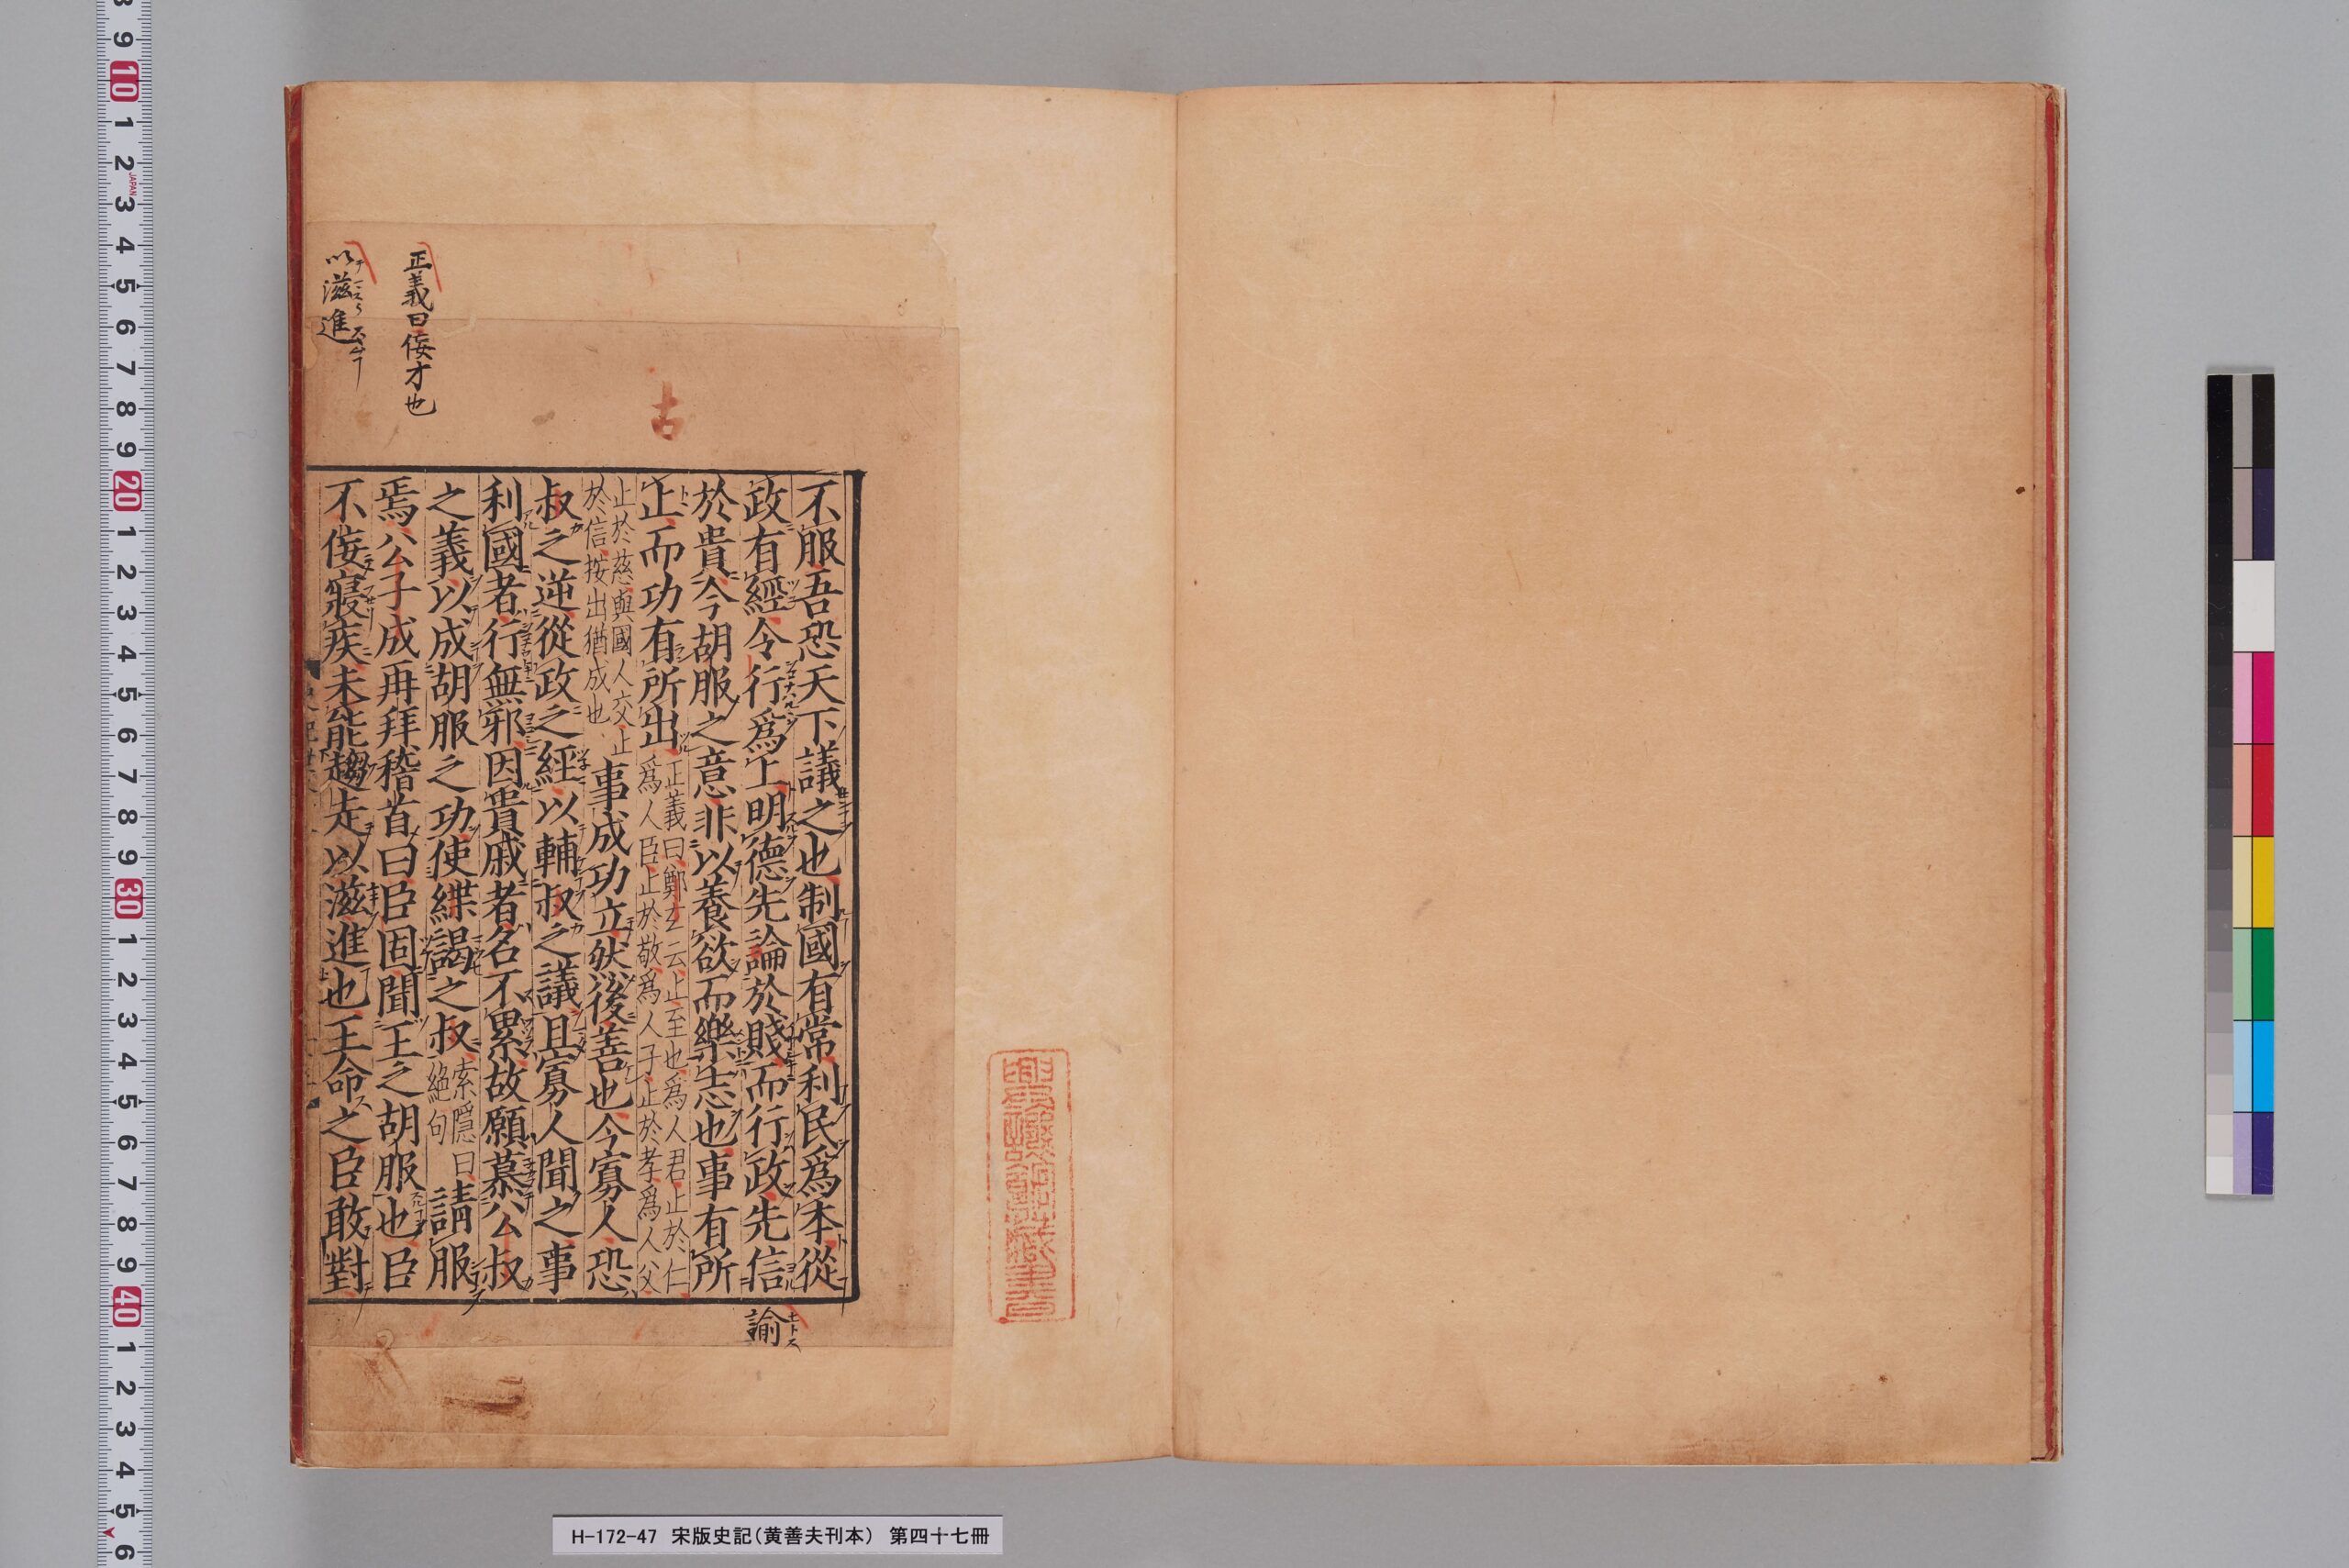 不服吾恐天下議之也制國有常利民爲本從
政有經令行爲上明德先論於賤而行政先信
於貴今胡服之意非以養欲而樂志也事有所
止而功有所出正義曰鄭玄云止至也爲人君止於仁
爲人臣止於敬爲人子止於孝爲人父
止於慈與國人交止
於信按出猶成也事成功立然後善也今寡人恐
叔之逆從政之經以輔叔之議且寡人聞之事
利國者行無邪因貴戚者名不累故願慕公叔
之義以成胡服之功使緤謁之叔索隱曰
絕句請服
焉公子成再拜稽首曰臣固聞王之胡服也臣
不佞寢疾未能趨走以滋進也王命之臣敢對
諭
正義曰佞才也
以滋進
古
H-172-47 宋版史記（黄善夫刊本） 第四十七冊
10
20
30
40
JAPAN